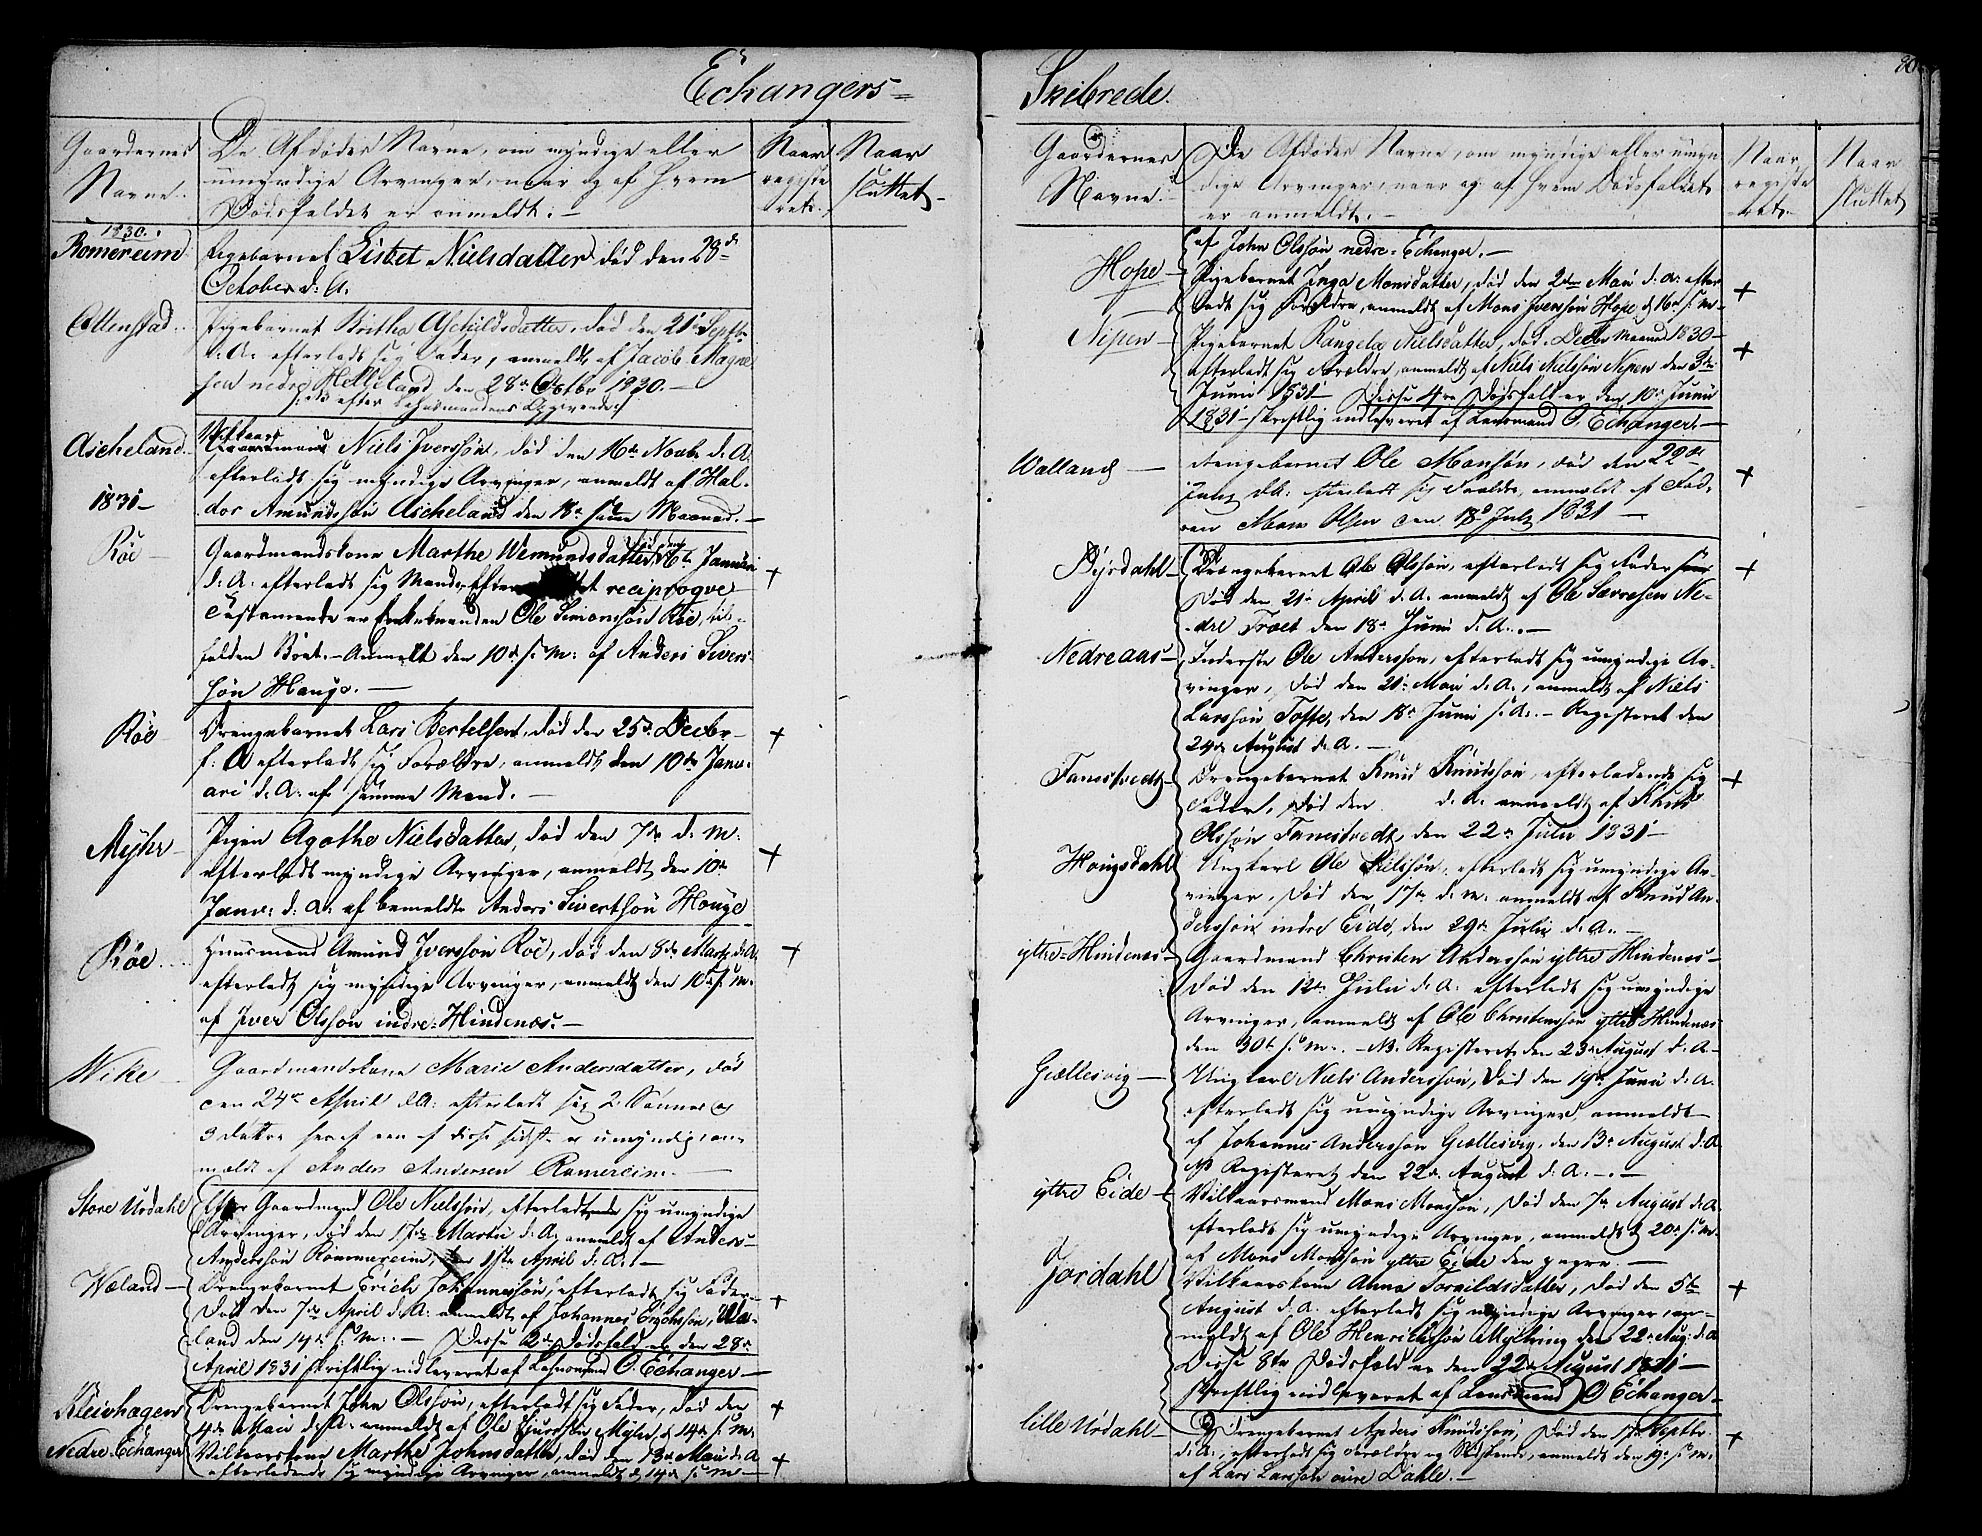 Echangers=
Gaardernes Navne.
De Afdødes Navne, om myndige eller
umyndige Arvinger, naar og af hvem
Dødsfaldet er anmeldt.-
Naar registeret.
Naar sluttet-
1830.
Romereim
Pigebarnet Lisbet Nielsdatter død den 28de
October d: A.
Ottenstad
Pigebarnet Britha Aschildsdatter, død den 21de Septbr
d: A: efterladt sig Fader, anmeldt af Jacob Magne
sen nedre Helleland den 28de Octbr 1830.-
efter Lehnsmandens Opgivende
Ascheland
Vilkaars
Niels Iversøn, død den 16de Novbr d. A.
efterladt sig myndige Arvinger, anmeldt af Hal-
dor Amundsøn Ascheland den 18de samme Maaned.-
1831-
Röe
Gaardmandskone Marthe Wemundsdatter, død den 6te Januari
d: A: efterladt sig Mand, Efter et reciproqve
Testamente er Enkemanden Ole Simonsøn Röe, til-
falden Boet.- Anmeldt den 10de s: M: af Anders Sivert-
søn Houge.-
+
Röe
Drengebarnet Lars Bertelsen, død den 25de Decbr-
f: A efterladt sig Forældre, anmeldt den 10de Janu-
ari d: A: af samme Mand.-
+
Myhr-
Pigen Agathe Nielsdatter, død den 7de d: M:
efterladt myndige Arvinger, anmeldt den 10de
Janu: d: A: af bemeldte Anders Sivertsøn Houge
+
Röe
Huusmand Amund Iversøn Röe, død den 8de Marts d: A.
efterladt sig myndige Arvinger, anmeldt den 10de s: M:
af Iver Olssøn indre=Hindenæs.-
+
Wike
Gaardmandskone Marie Andersdatter, død
den 24de April d.A: efterladt sig 2 Sønner og
3 Døttre hvoraf een af disse sidste er umyndig, an-
meldt af Anders Andersen Romereim.-
Store Urdahl
Efter Gaardmand Ole Nielsøn, efterladt sig umyndige
Arvinger, død den 17de Martii d: A: anmeldt af Anders
Andersøn Rommereim, den 11te April d: A:-
Wæland-
Drengebarnet Erich Johannesøn, efterladt sig Fader-
død den 7de April d: A: anmeldt af Johannes Erichsøn, Wæ-
land den 14de s: M:.- Disse 2de Dødsfald er den 28de
April 1831 skriftlig indleveret af Lehnsmand O. Echanger-
+
Kleivhagen
Drengebarnet John Olssøn, efterladt sig Fader, død den
4de Maii d: A: anmeldt af Ole Myhr, d 14de s: M:
+
Nedre Echanger
Vilkaarskone Marthe Johnsdatter, død den 13de Maii d: A
efterladende sig myndige Arvinger, anmeldt d 14de s: M-
+
Skibrede.
80
Gaardernes Navne.
De Afdødes Navne, om myndige eller umyn
dige Arvinger, naar og af hvem Dødsfaldet
er anmeldt.-
Naar registeret.
Naar sluttet
af John Olssøn nedre=Echanger.-
Hope-
Pigebarnet Inga Monsdatter, død den 2den Maii d: A: efter
ladt sig Forældre, anmeldt af Mons Iversøn Hope d 16de s: M-
+
Nipen-
Pigebarnet Rangela Nielsdatter, død Decbr Maaned 1830-
efterladt sig Forældre, anmeldt af Niels Nielsøn Nipen den 3de
Junii 1831- Disse 4re Dødsfald er den 10de Junii
1831- skriftlig indleveret af Lensmand O. Echanger.-
+
Walland-
Drengebarnet Ole Monsøn, død den 22de
Juny d.A: efterladt sig Forældre, anmeldt af Fad-
ren Mons Olsen den 18de July 1831-
+
Dyrdahl-
Drengebarnet Ole Olssøn, efterladt sig Fader
død den 21de April d: A: anmeldt af Ole Larsen Ne-
dre Troet den 18de Junii d: A:.-
+
Nedreaas-
Inderste Ole Andersøn, efterladt sig umyndige Ar-
vinger, død den 21de Maii d: A:, anmeldt af Niels
Larssøn Tofte, den 18de Junii s: A:.- Registeret den
24de August d: A.-
Fanestvedt-
Drengebarnet Knud Knudsøn, efterladende sig
Fader, død den d: A: anmeldt af Knud
Olssøn Fanestvedt, den 22de Julii 1831-
+
Hougsdahl
Ungkarl Ole Nilssøn, efterladt sig umyndige Ar-
vinger, død den 17de d: M: anmeldt af Knud An-
dersøn indre Eide, den 29de Julii d: A:.-
ytre=Hindenes-
Gaardmand Christen Andersøn yttre Hindenes-
død den 12te Julii d: A: efterladt sig umyndige
Arvinger, anmeldt af Ole Christensøn yttre Hindenæs
den 30te s: M:.- NB. Registeret den 23de August d: A-
Giællesvig-
Ungkarl Niels Andersøn, død den 19de Junii d: A.
efterladt sig umyndige Arvinger, anmeldt-
af Johannes Andersøn Giællesvig, den 13de August d: A
NB Registeret den 22de August d: A:-.-
yttre Eide-
Vilkaarsmand Mons Monsøn, død den 7de August d: A
efterladt sig umyndige Arvinger, anmeldt 20de s: M
af Mons Monssøn yttre Eide den yngre.-
Jordahl
Vilkaarskone Anna Torgildsdatter, død den 5te
August d: A: efterladt sig myndige Arvinger, an-
meldt af Ole Henrichsøn Mykting den 22de Aug: d: A
Disse 8te Dødsfald er den 22de August 1831-
skriftlig indleveret af Lensmand O Echanger-
+
lille Urdahl-
Drengebarnet Anders Knudsøn, død den 17de Septbr.
d: A:, efterladt sig Forældre og Sødskende, anmeldt den 19de s: M:
af Lars Larssøn øvre Dahle.-
+